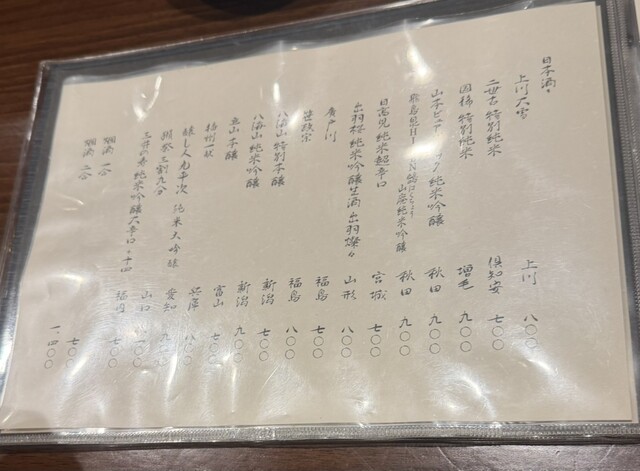 日本酒。
上川大雪 上川 八〇〇
二世古 特別純米 倶知安 七〇〇
國稀 特別純米 増毛 九〇〇
山本ピュア ック 純米吟醸 秋田 九〇〇
山廃純米吟醸 秋田 九〇〇
日高見 純米超辛口 宮城 七〇〇
出羽桜 純米吟醸生酒 出羽燦々 山形 八〇〇
廣戸川 福島 七〇〇
笹政宗 福島 八〇〇
八海山 特別本醸 新潟 七〇〇
八海山 純米吟醸 新潟 九〇〇
立山 本醸 富山 七〇〇
播州一献 兵庫 八〇〇
醸し人九平次 純米大吟醸 愛知 九〇〇
獺祭 三割九分 山口 一〇〇
三井の寿 純米吟醸大辛口+十四 福岡 七〇〇
燗酒 一合 七〇〇
燗酒 二合 一、四〇〇